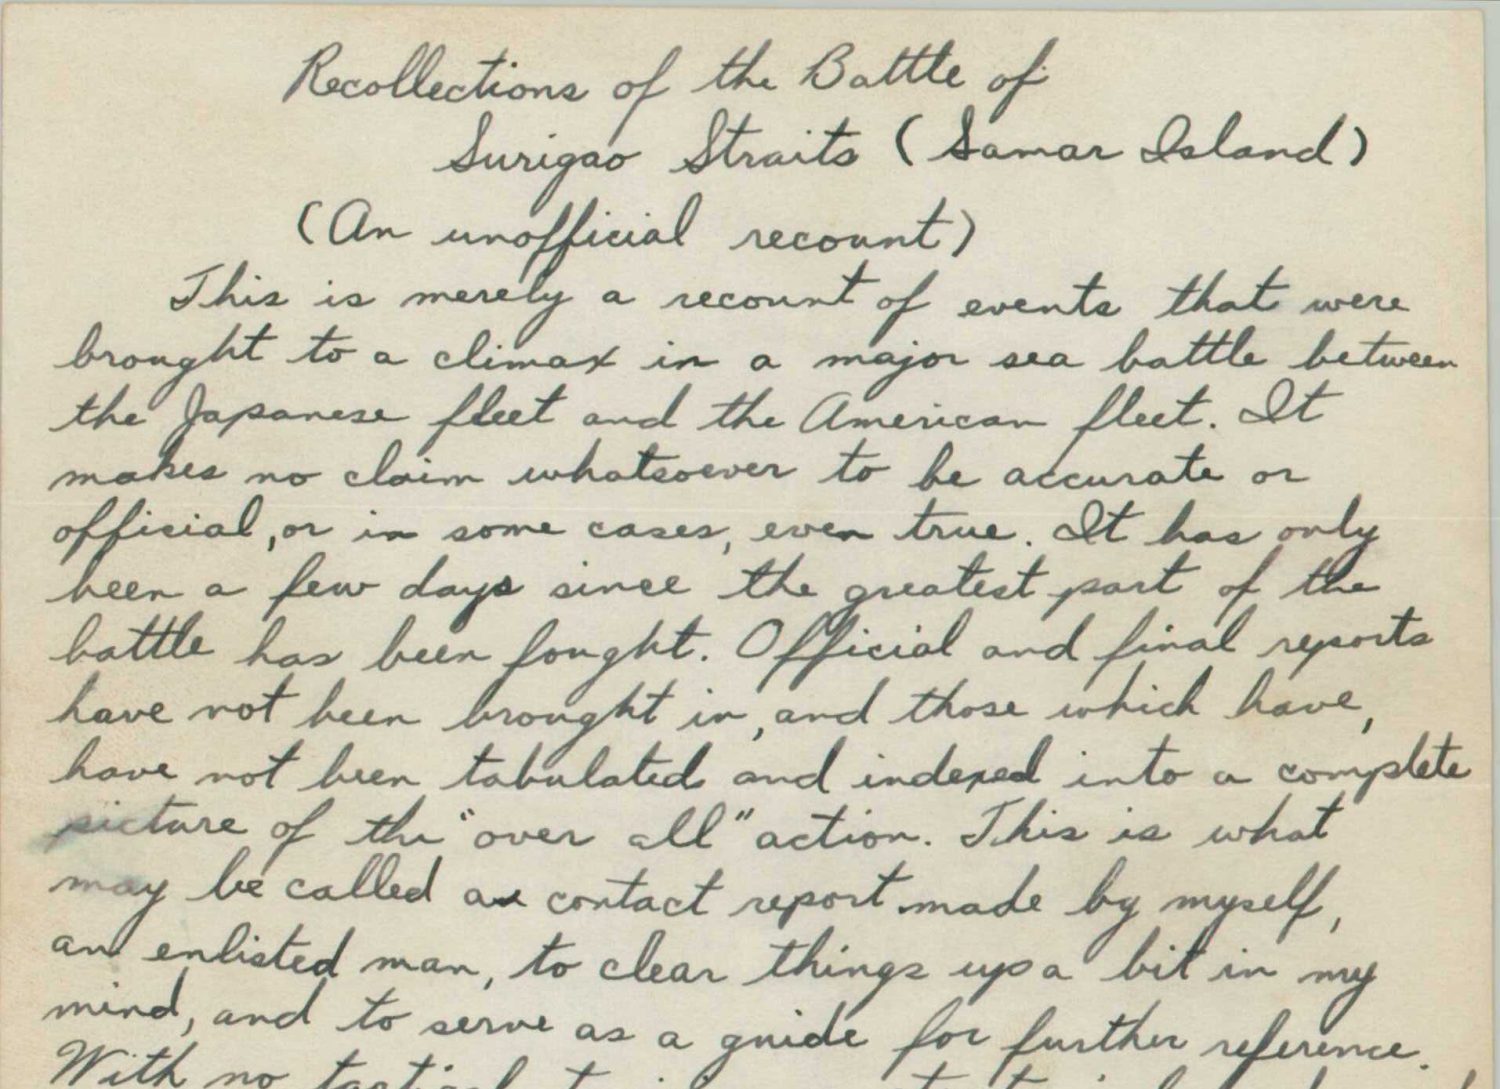 Recollections of the Battle of
Surigao Straits (Samar Island)
(An unofficial recount)
This is merely a recount of events that were
brought to a climax in a major sea battle between
the Japanese fleet and the American fleet. It
makes no claim whatsoever to be accurate or
official, or in some cases, even true. It has only
been a few days since the greatest part of the
battle has been fought. Official and final reports
have not been brought in, and those which have,
have not been tabulated and indexed into a complete
picture of the "over all" action. This is what
may be called a contact report made by myself,
an enlisted man, to clear things up a bit in my
mind, and to serve as a guide for further reference.
With no tactical